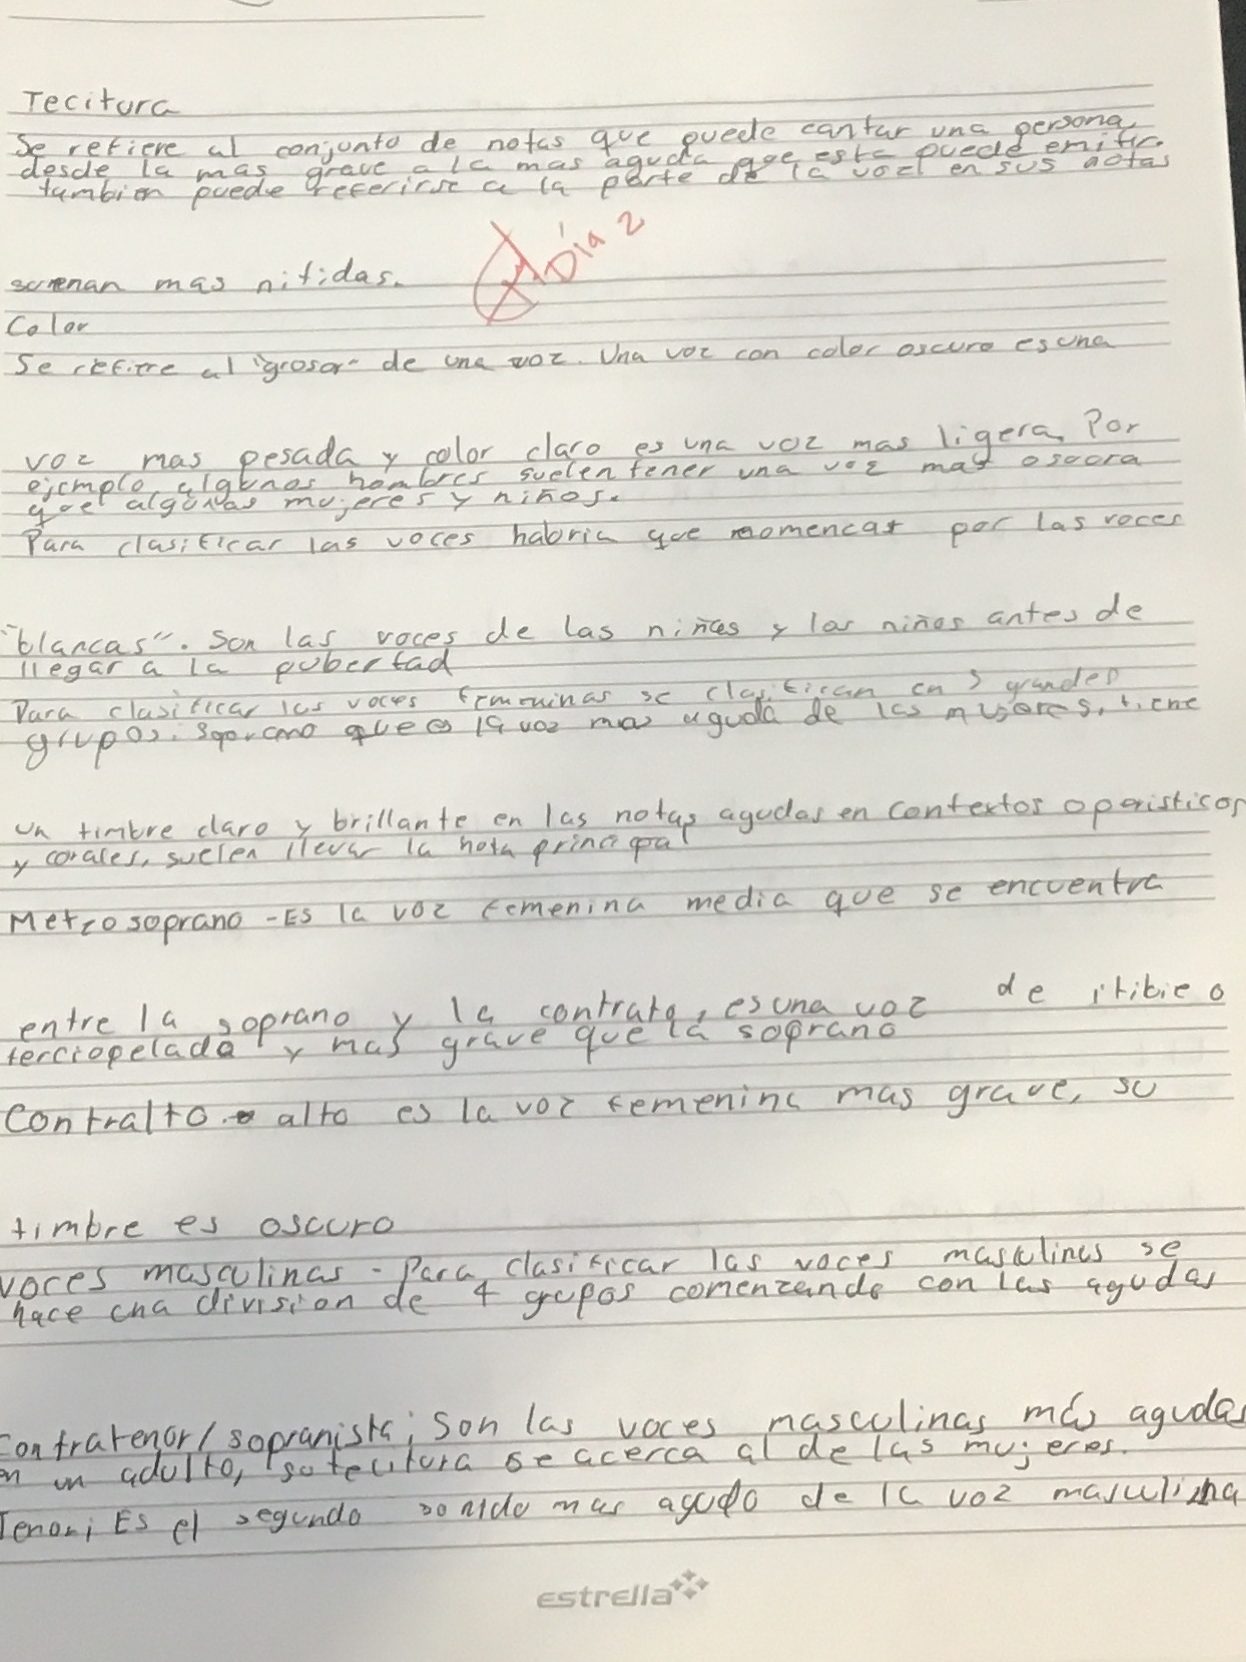 Tecitura
Se refiere al conjunto de notas que puede cantar una persona,
desde la mas grave a la mas aguda que esta puede emitir.
tambien puede referirse a la parte de la voz en sus notas
Día 2
suenan mas nitidas.
Color
Se refiere al "grosor" de una voz. Una voz con color oscuro es una
voz mas pesada y color claro es una voz mas ligera. Por
ejemplo algunos hombres suelen tener una voz mas oscura
que algunas mujeres y niños.
Para clasificar las voces habria que comenzar por las voces
"blancas". Son las voces de las niñas y los niños antes de
llegar a la pubertad
Para clasificar las voces femeninas se clasifican en 3 grandes
grupos. Soprano que es la voz mas aguda de las mujeres, tiene
un timbre claro y brillante en las notas agudas en contextos operisticos
y corales, suelen llevar la nota principal
Metzosoprano - Es la voz femenina media que se encuentra
entre la soprano y la contrato, es una voz de
terciopelada y mas grave que la soprano
Contralto. alto es la voz femenina mas grave, su
timbre es oscuro
voces masculinas - Para clasificar las voces masculinas se
hace una division de 4 grupos comenzando con las agudas
Contratenor/sopranista; Son las voces masculinas más agudas
en un adulto, su tecitura se acerca al de las mujeres.
Tenor; Es el segundo sonido mas agudo de la voz masculina
estrella